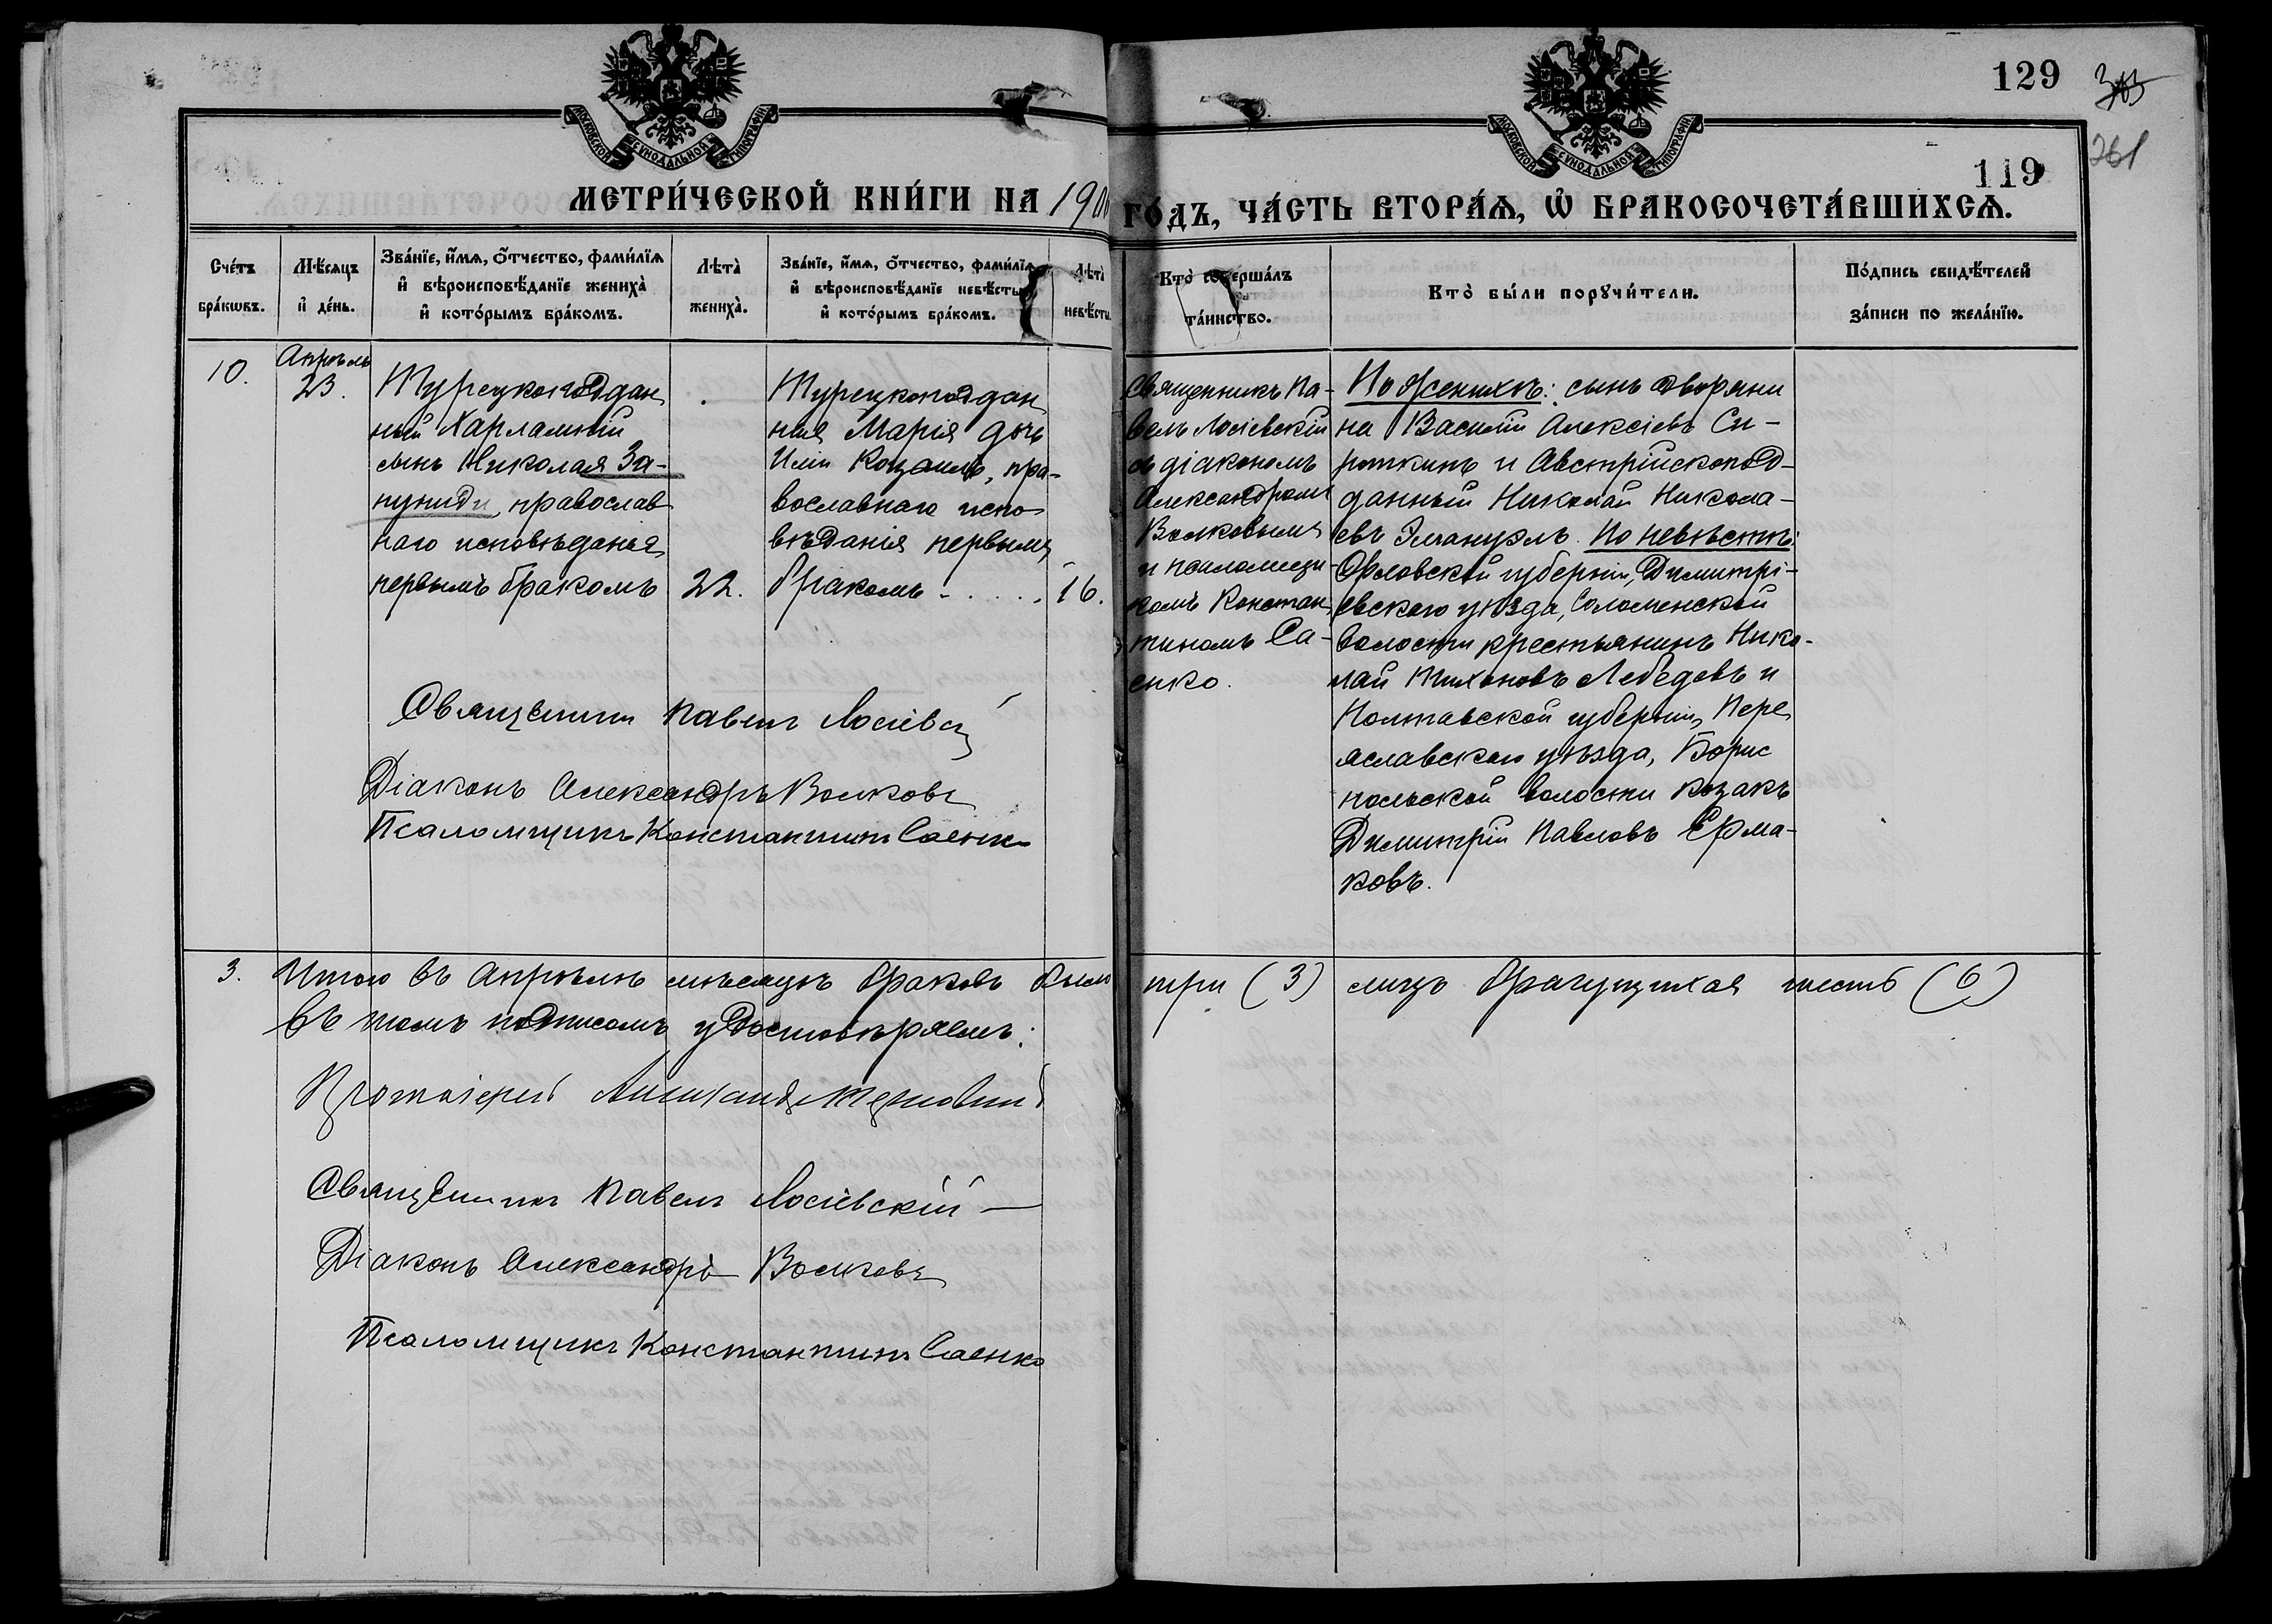 129
261
119
МОСКОВСКОЙ СѴНОДАЛЬНОЙ ТИПОГРАФІИ
МОСКОВСКОЙ СѴНОДАЛЬНОЙ ТИПОГРАФІИ
МЕТРИ́ЧЕСКОЙ КНИ́ГИ НА 190
ГО́ДЪ, ЧА́СТЬ ВТОРА́Ѧ, Ѡ҆ БРАКОСОЧЕТА́ВШИХСѦ.
Сче́тъ бра́кѡвъ.
Мѣ́сѧцъ и҆ де́нь.
Зва́нїе, и҆́мѧ, ѻ҆́тчество, фами́лїѧ
и҆ вѣроисповѣ́данїе жениха̀
и҆ кото́рымъ бра́комъ.
Лѣта̀ жениха̀.
Зва́нїе, и҆́мѧ, ѻ҆́тчество, фами́лїѧ
и҆ вѣроисповѣ́данїе невѣ́сты
и҆ кото́рымъ бра́комъ.
Лѣта̀ невѣ́сты.
Кто̀ соверша́лъ
та́инство.
Кто̀ бы́ли порꙋчи́тели.
По́дпись свидѣ́телей
за́писи по жела́нїю.
10.
Апрѣль
23.
Турецкоподдан
ный Харлампій
сынъ Николая За-
пуниди, православ
наго исповѣданія,
первымъ бракомъ
22.
Турецкоподдан
ная Марія дочь
Иліи, пра-
вославнаго испо
вѣданія первымъ
бракомъ
16.
Священникъ Па-
велъ Лосіевскій
съ діакономъ
Александромъ
Волковымъ
и псаломщи
комъ Констан
тиномъ Са-
енко.
По женихѣ: сынъ дворяни
на Василій Алексіевъ Си-
роткинъ и Австрійскопод-
данный Николай Никола-
евъ Эмануэль. По невѣстѣ:
Орловской губерніи, Димитрі-
евскаго уѣзда, Соломенской
волости крестьянинъ Нико-
лай Тихоновъ Лебедевъ и
Полтавской губерніи, Пере
яславскаго уѣзда, Борис
польской волости козакъ
Димитрій Павловъ Ерма-
ковъ.
Священникъ Павелъ Лосіевскій
Діаконъ Александръ Волковъ
Псаломщикъ Константинъ Саенко
3. Итого въ Апрѣлѣ мѣсяцѣ браковъ было три (3) лицъ брачущихся шесть (6)
въ томъ подписомъ удостовѣряемъ:
Протоіерей
Священникъ Павелъ Лосіевскій
Діаконъ Александръ Волковъ
Псаломщикъ Константинъ Саенко